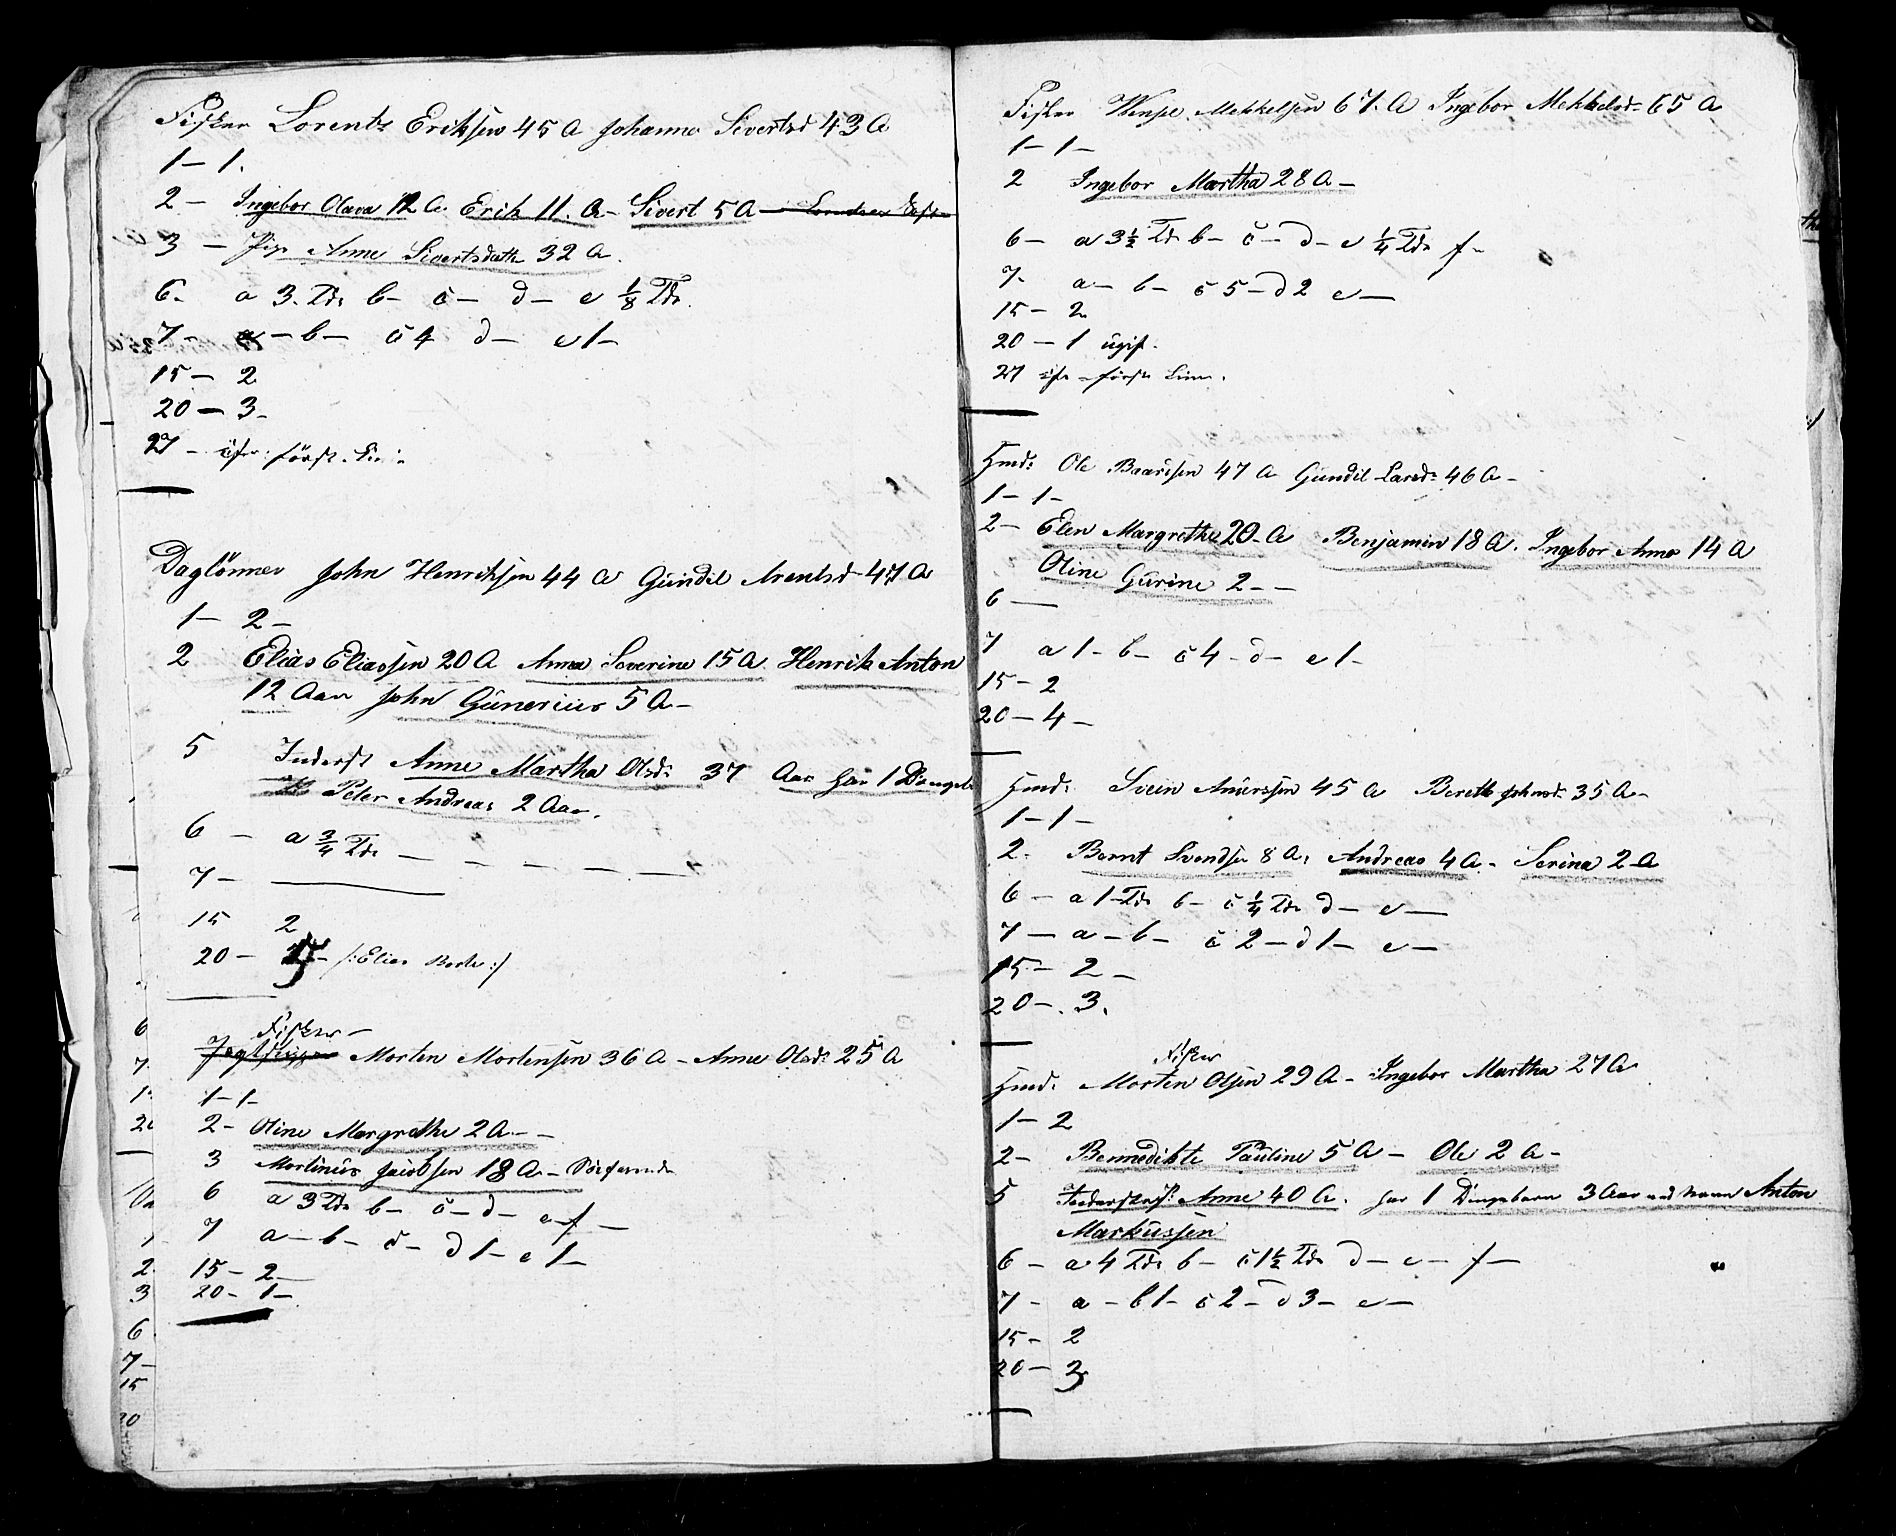 Fisker Lorentz Eriksen 45 A Johanna Sivertsd 43 A
1 – 1.
2 – Ingebor Olava 12 A. Erik 11. A – Sivert 5 A
3 – Pige Anne Sivertsdatte 32 A.
6 – a 3. Tdr b – c – d – e 1/8 Tdr.
7 – a – b – c 4 d – e 1 –
15 – 2
20 – 3 –
27 – först.
Daglönner John Henriksen 44 A Gundil Arentsd 47 A
1 – 2 –
2 Elias Eliassen 20 A Anna Severine 15 A Henrik Anton
12 Aar John Gunerius 5 A –
5 Inderst Anne Martha Olsd: 37 Aar har 1
Peter Andreas 2 Aar.
6 – a 3/4 Tdr – – – – –
7 –
15 2
20 – /: Elias :/
Fisker –
Morten Mortensen 36 A – Anne Olsd: 25 A
1 – 1 –
2 – Oline Margrethe 2 A – –
3 Martinus Jacobsen 18 A –
6 a 3 Tdr b – c – d – e – f –
7 a – b – c – d 1 – e 1 –
15 – 2 –
20 – 1 –
Fisker Mekkelsen 67. A Ingebor Mekkelsd – 65 A
1 – 1 –
2 Ingebor Martha 28 A –
6 – a 3 1/2 Tdr b – c – d – e 1/4 Tdr f –
7 – a – b – c 5 – d 2 e –
15 – 2
20 – 1 ugift.
27 först
Huud: Ole Baarsen 47 A Gundil Larsd: 46 A –
1 – 1 –
2 – Elen Margrethe 20 – A Benjamin 18 A. Ingebor Anna 14 A
Oline Gurine 2 – –
6 –
7 a 1 – b – c 4 – d – e 1 –
15 – 2
20 – 4 –
Huud: Svein Anderssen 45 A Bereth Johnsd: 35 A –
1 – 1 –
2 – Bernt Svendsen 8 A, Andreas 4 A – Serina 2 A
6 – a 1 Tdr b – c 1/4 Tdr d – e –
7 – a – b – c 2 – d 1 – e –
15 – 2 –
20 – 3.
Fisker
Huud: Morten Olsen 29 A – Ingebor Martha 27 A
1 – 2
2 – Bennedikte Pauline 5 A – Ole 2 A –
5 Anne 40 A. har 1 3 Aar ved Navn Anton
Markussen
6 – a 4 Tdr b – c 1 1/2 Tdr d – e – f –
7 – a – b 1 – c 2 – d 3 – e –
15 – 2
20 – 3